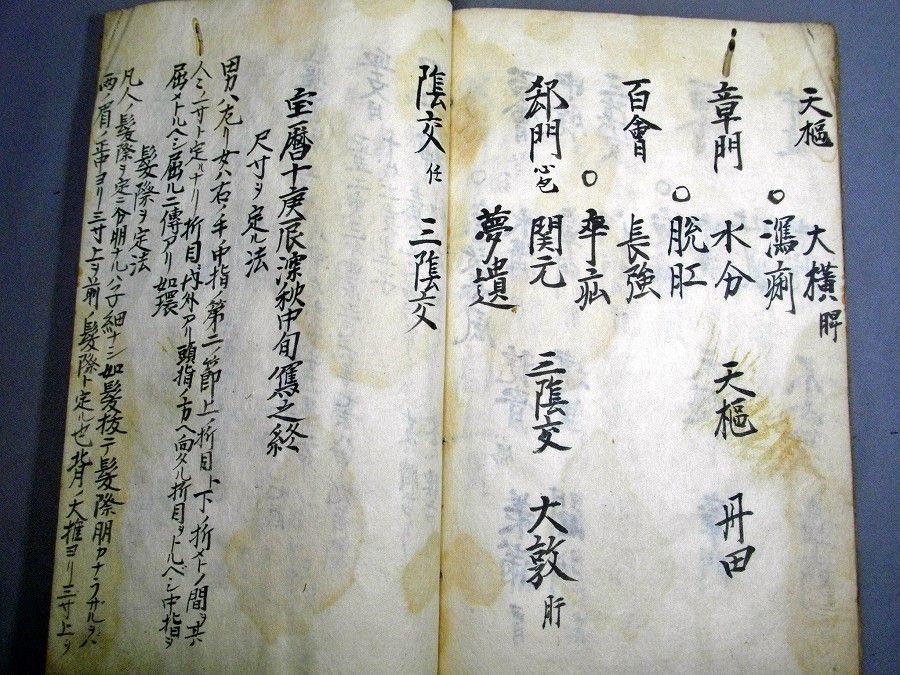 天樞 大横脾
○瀉痢
章門 水分 天樞 丹田
○脱肛
百會 長強
○卒疝
郄門心包 関元 三陰交 大敦肝
夢遺
陰交任 三陰交
宝暦十庚辰深秋中旬寫之終
尺寸ヲ定ル法
男ハ左リ女ハ右ノ手中指ノ第二ノ節上ノ折目ト下ノ折メトノ間ヲ其
人ノ一寸ト定ルナリ折目ハ内外アリ頭指ノ方ヘ向クル折目ヲトルベシ中指ヲ
屈メトルヘシ屈ルニ傳アリ 如環
髪際ヲ定法
凡人ノ髪際ヲ定ニ分明ナルハ子細ナシ如髪抜テ髪際明カナラザルヲハ
両ノ眉ノ正中ヨリ三寸上ヲ前ノ髪際ト定ル也背ノ大椎ヨリ三寸上ヲ